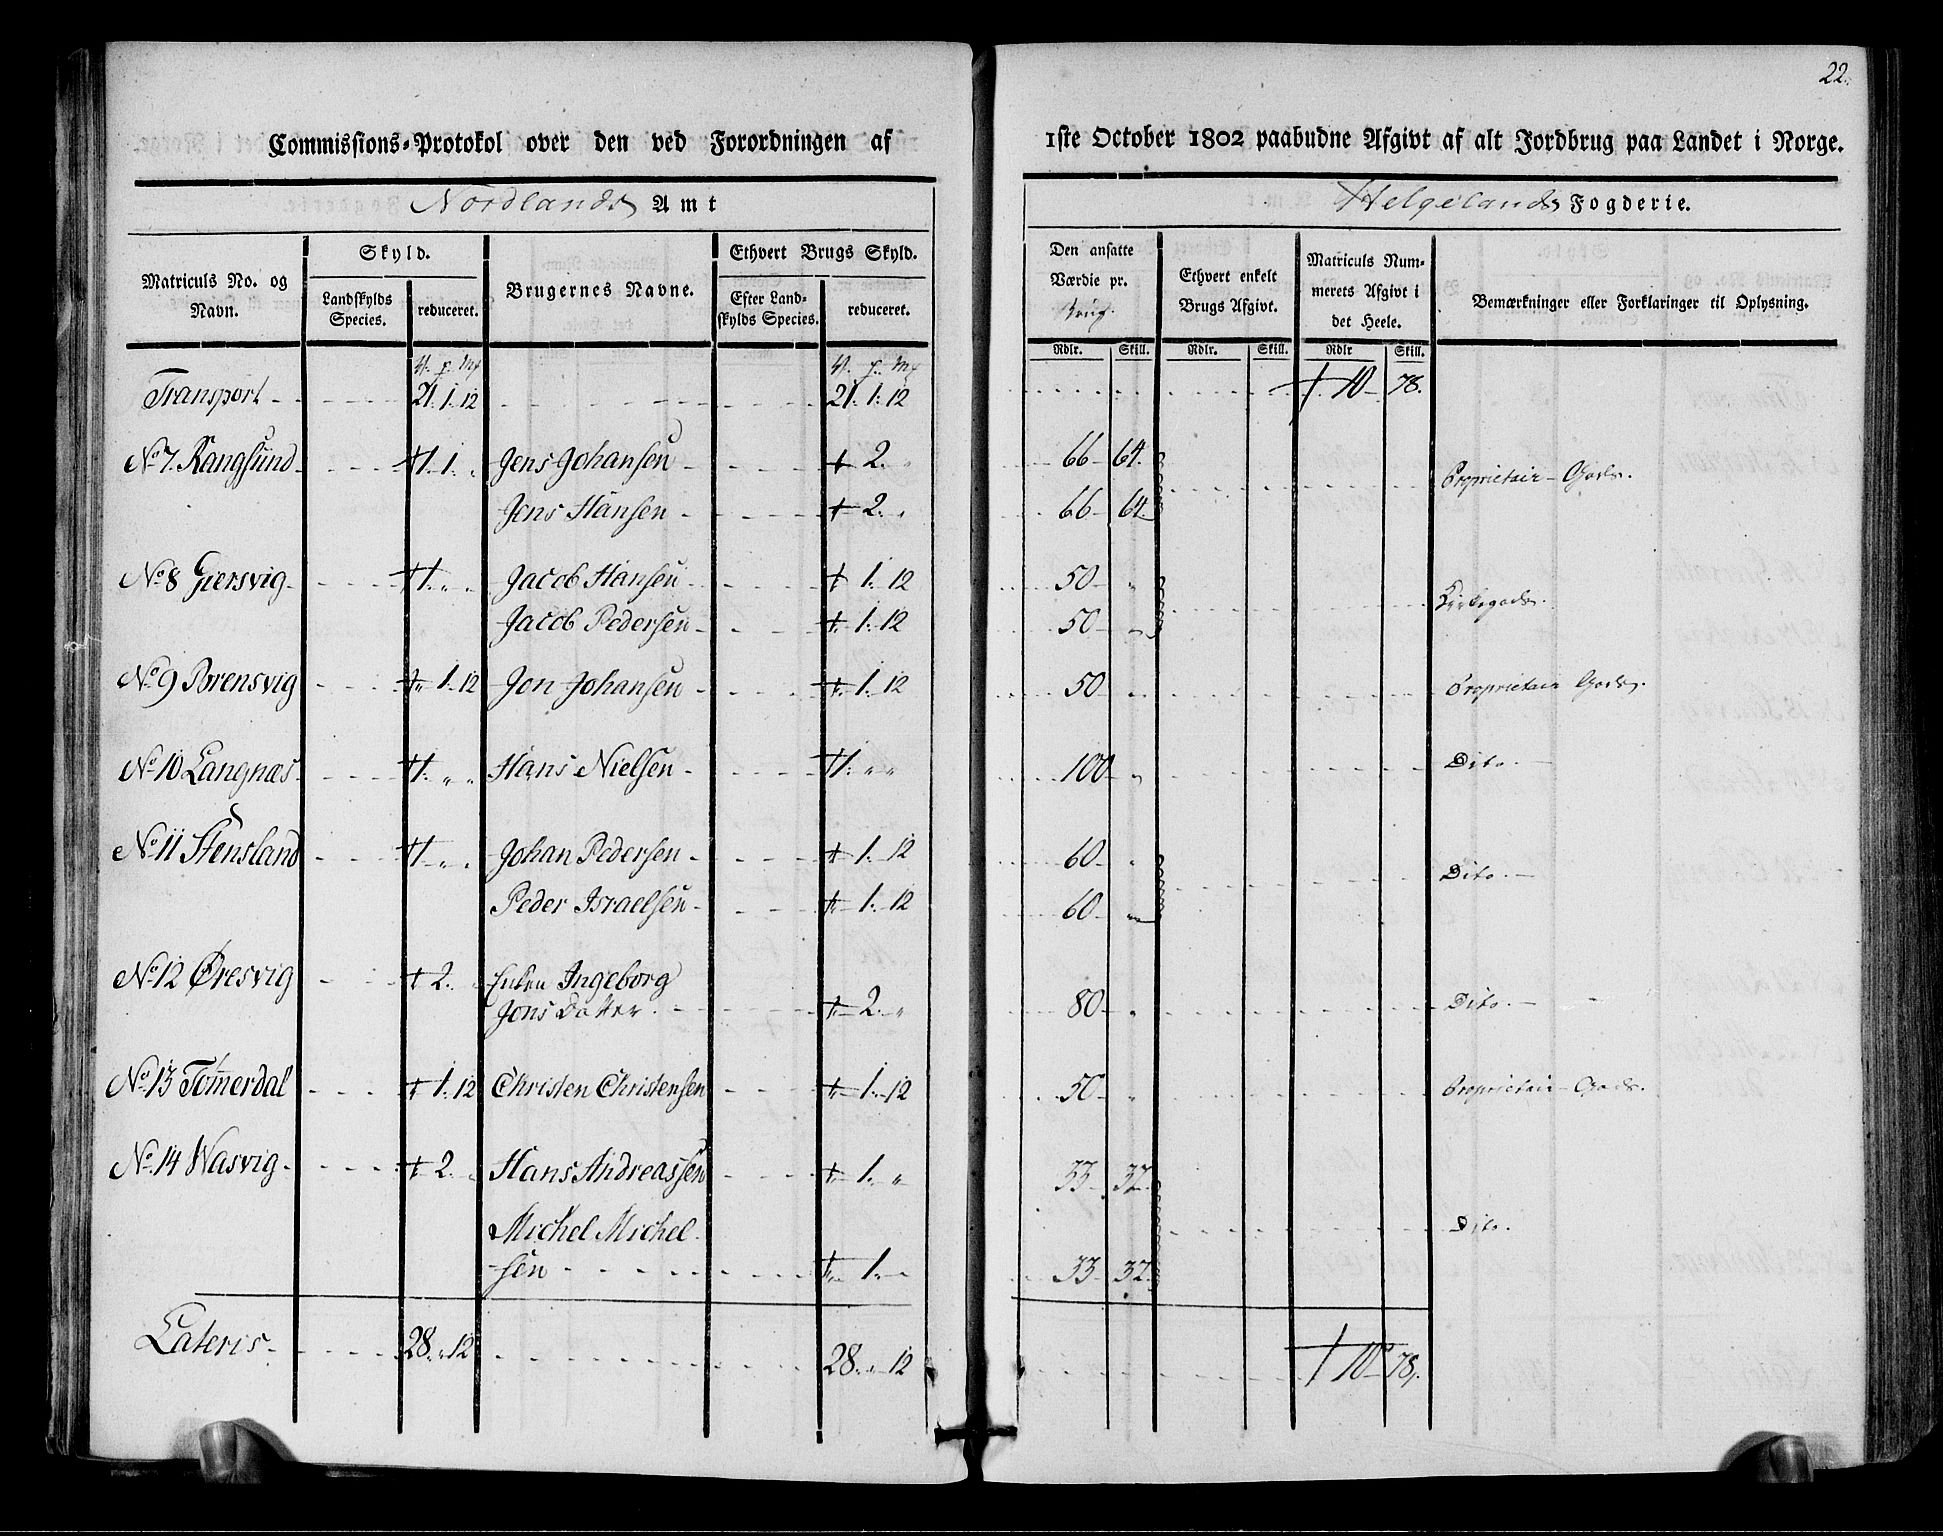 22.
Commissions-Protokol over den ved Forordningen af 1ste October 1802 paabudne Afgivt af alt Jordbrug paa Landet i Norge.
Nordlands Amt Helgelands Fogderie.
Matriculs No. og Navn. Skyld. Landskylds Species. reduceret. Brugernes Navne. Ethvert Brugs Skyld. Efter Landskylds Species. reduceret. Den ansatte Værdie pr. Brug. Ethvert enkelt Brugs Afgivt. Matriculs Nummerets Afgivt i det Heele. Bemærkninger eller Forklaringer til Oplysning.
Rdlr. Skill. Rdlr. Skill. Rdlr Skill.
Transport 21. 1. 12 21. 1. 12 10 78.
No. 7. Rangsund 1. 1. Jens Johansen 2. 66 64. Proprietair Gods.
Jens Hansen 2. 66 64.
No. 8 Giersvig 1. Jacob Hansen 1. 12 50 Kirkegods.
Jacob Pedersen 1. 12 50
No. 9 Brensvig 1. 12 Jon Johansen 1. 12 50 Proprietair Gods.
No. 10 Langnæs 1. Hans Nielsen 1. 100 Dito.
No. 11 Stensland 1. Johan Pedersen 1. 12 60 Dito.
Peder Israelsen 1. 12 60
No. 12 Øresvig 2. Enken Ingeborg
Jons Datter. 2. 80 Dito.
No. 13 Tømerdal 1. 12 Christen Christensen 1. 12 50 Proprietair Gods.
No. 14 Wasvig 2. Hans Andreassen 1. 33 32 Dito.
Michel Michel
sen 1. 33 32
Lateris 28. 12 28. 12 10 78.